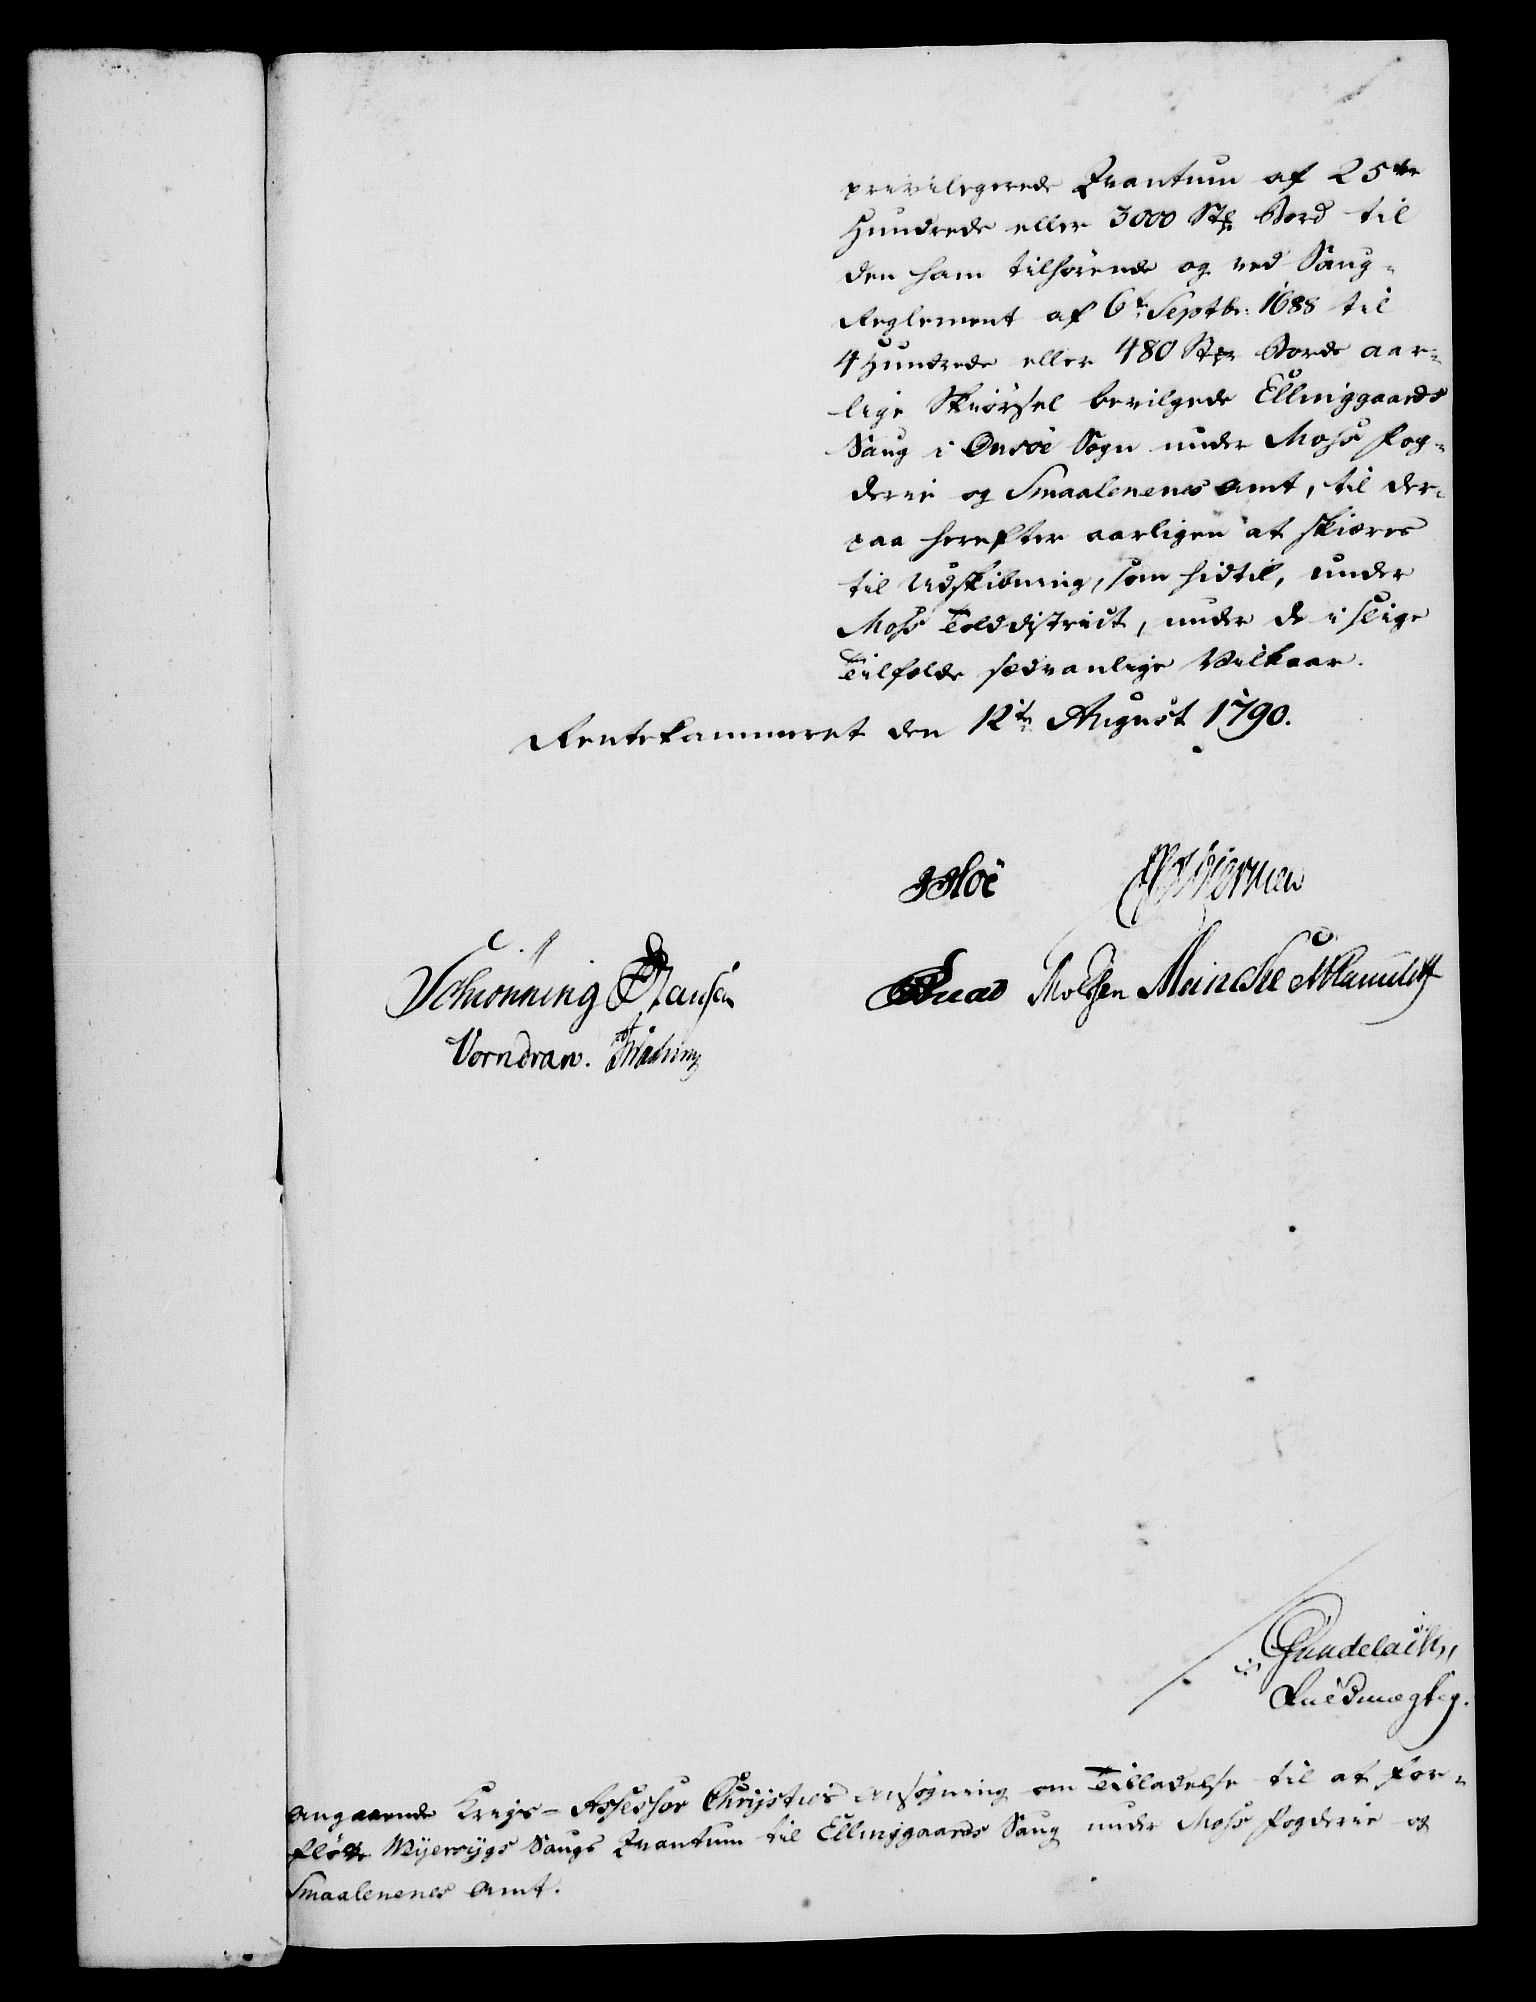 privilegerede Qvantum af 25ve
Hundrede eller 3000 Stkr Bord til
den ham tilhørende og ved Saug-
Reglement af 6te Septbr: 1688 til
4 Hundrede eller 480 Stkr Borde aar-
lige Skiørsel bevilgede Ellinggaards
Saug i Onsöe Sogn under Moss Fog-
derie og Smaalenenes Amt, til der-
paa herefter aarligen at skiæres
til Udskibning, som hidtil, under
Moss Tolddistrict, under de i slige
Tilfælde sædvanlige Vilkaar.
Rentekammeret den 12te August 1790.
Schiønning Hansen
Knad Moldsen Meincke
Vorndran.
Gundelach,
Fuldmægtig.
Angaaende Krigs-Assessor Chrysties Ansøgning om Tilladelse til at for-
flötte Saugs Qvantum til Ellinggaards Saug under Moss Fogderie og
Smaalenenes Amt.